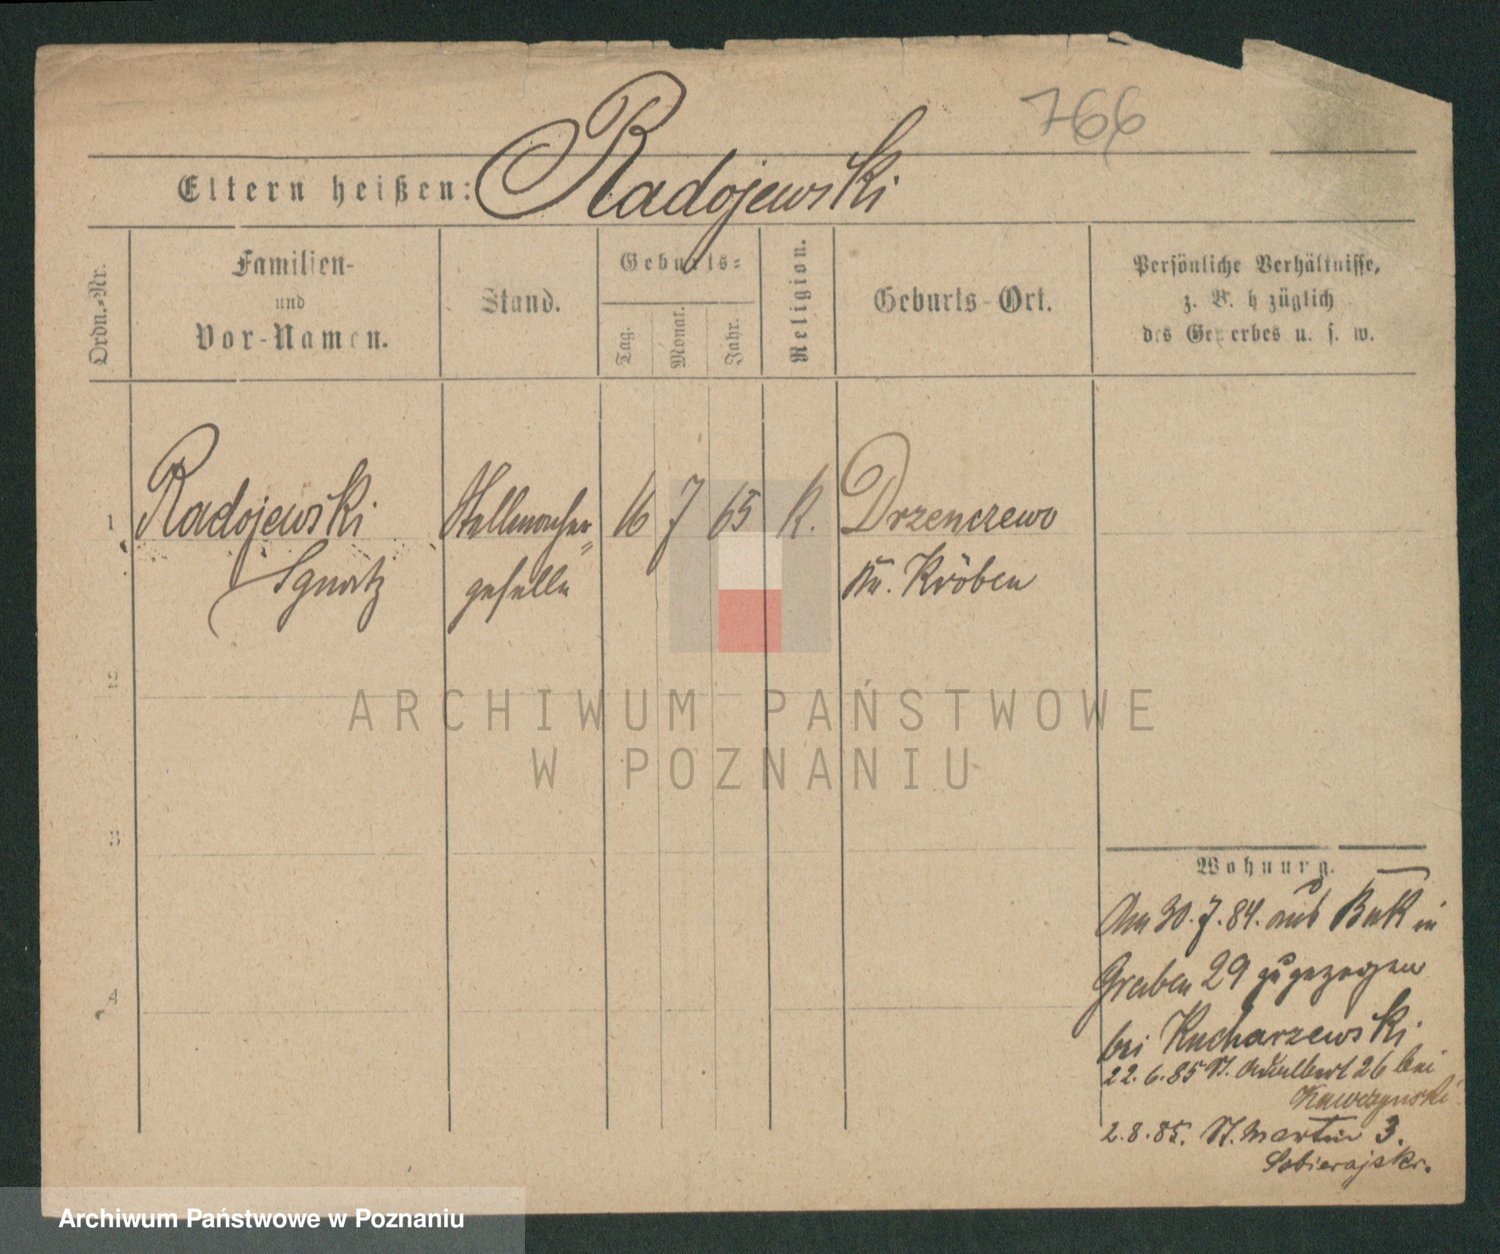 766
Eltern heißen: Radojewski
Ordn.-Nr.
Familien-
und
Vor-Namen.
Stand.
Geburts-
Tag.
Monat.
Jahr.
Religion.
Geburts-Ort.
Persönliche Verhältnisse,
z. B. bezüglich
des Gewerbes u. s. w.
1 Radojewski Stellmacher- 16 7 65 K. Drzenczewo
Ignatz geselle Kr. Kröben
2
ARCHIWUM PAŃSTWOWE
W POZNANIU
3
Wohnung.
Am 30.7.84. aus Buk in
Graben 29 zugezogen
4
bei Kucharzewski
22.6.85 St. Adalbert 26 bei
Kawczynski
2.8.85. St. Martin 3.
Sobierajski.
Archiwum Państwowe w Poznaniu